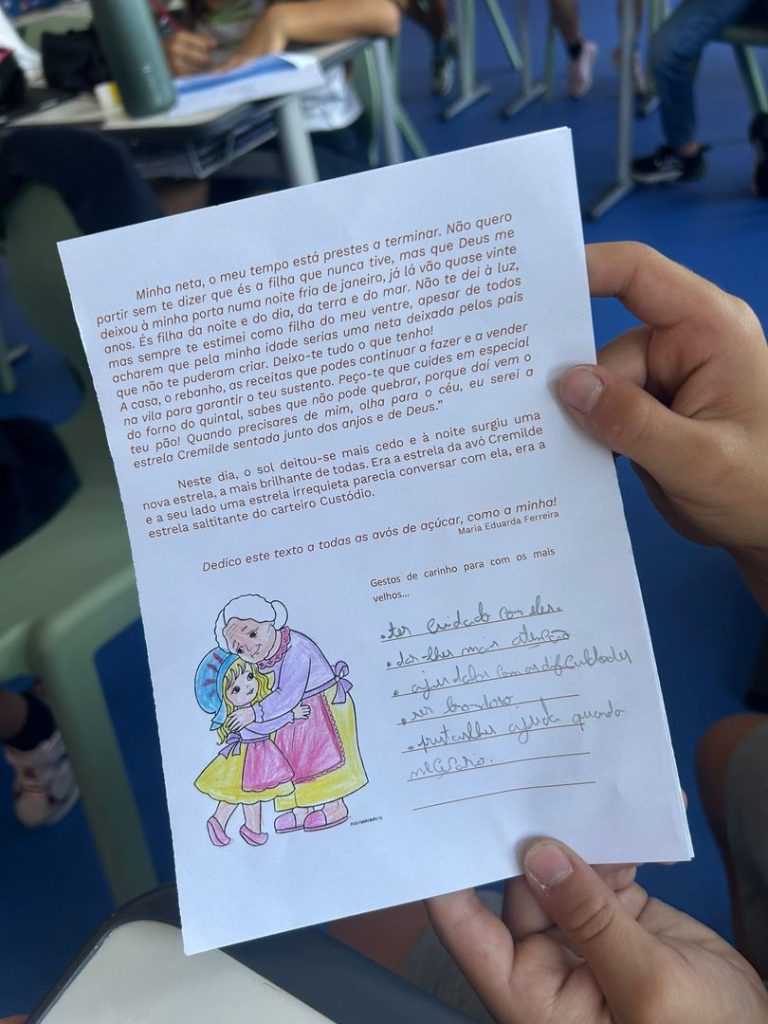 Minha neta, o meu tempo está prestes a terminar. Não quero
partir sem te dizer que és a filha que nunca tive, mas que Deus me
deixou à minha porta numa noite fria de janeiro, já lá vão quase vinte
anos. És filha da noite e do dia, da terra e do mar. Não te dei à luz,
mas sempre te estimei como filha do meu ventre, apesar de todos
acharem que pela minha idade serias uma neta deixada pelos pais
que não te puderam criar. Deixo-te tudo o que tenho!
A casa, o rebanho, as receitas que podes continuar a fazer e a vender
na vila para garantir o teu sustento. Peço-te que cuides em especial
do forno do quintal, sabes que não pode quebrar, porque daí vem o
teu pão! Quando precisares de mim, olha para o céu, eu serei a
estrela Cremilde sentada junto dos anjos e de Deus.”
Neste dia, o sol deitou-se mais cedo e à noite surgiu uma
nova estrela, a mais brilhante de todas. Era a estrela da avó Cremilde
e a seu lado uma estrela irrequieta parecia conversar com ela, era a
estrela saltitante do carteiro Custódio.
Dedico este texto a todas as avós de açúcar, como a minha!
Maria Eduarda Ferreira
Gestos de carinho para com os mais
velhos...
• ter cuidado com eles.
• dar-lhes mais atenção
• ajudalos com as dificuldades
• ser bondoso.
• prestar-lhes ajuda quando